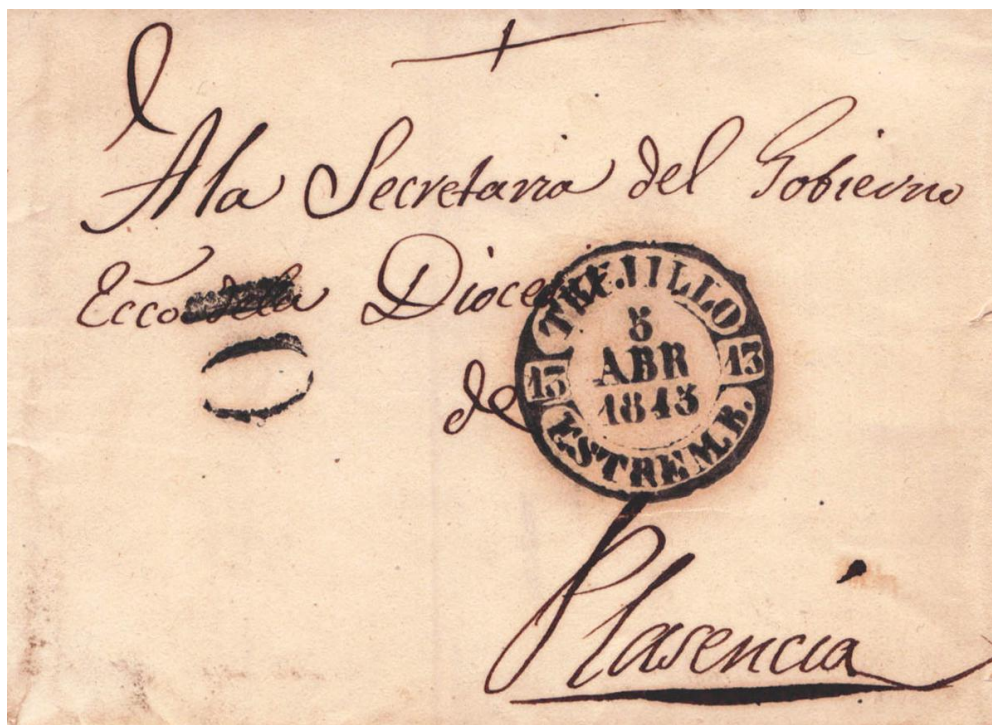 A la Secretaria del Gobierno
Ecco de la Dioce
de
TRUJILLO
5
ABR
1845
13 13
ESTREM.B.
Plasencia